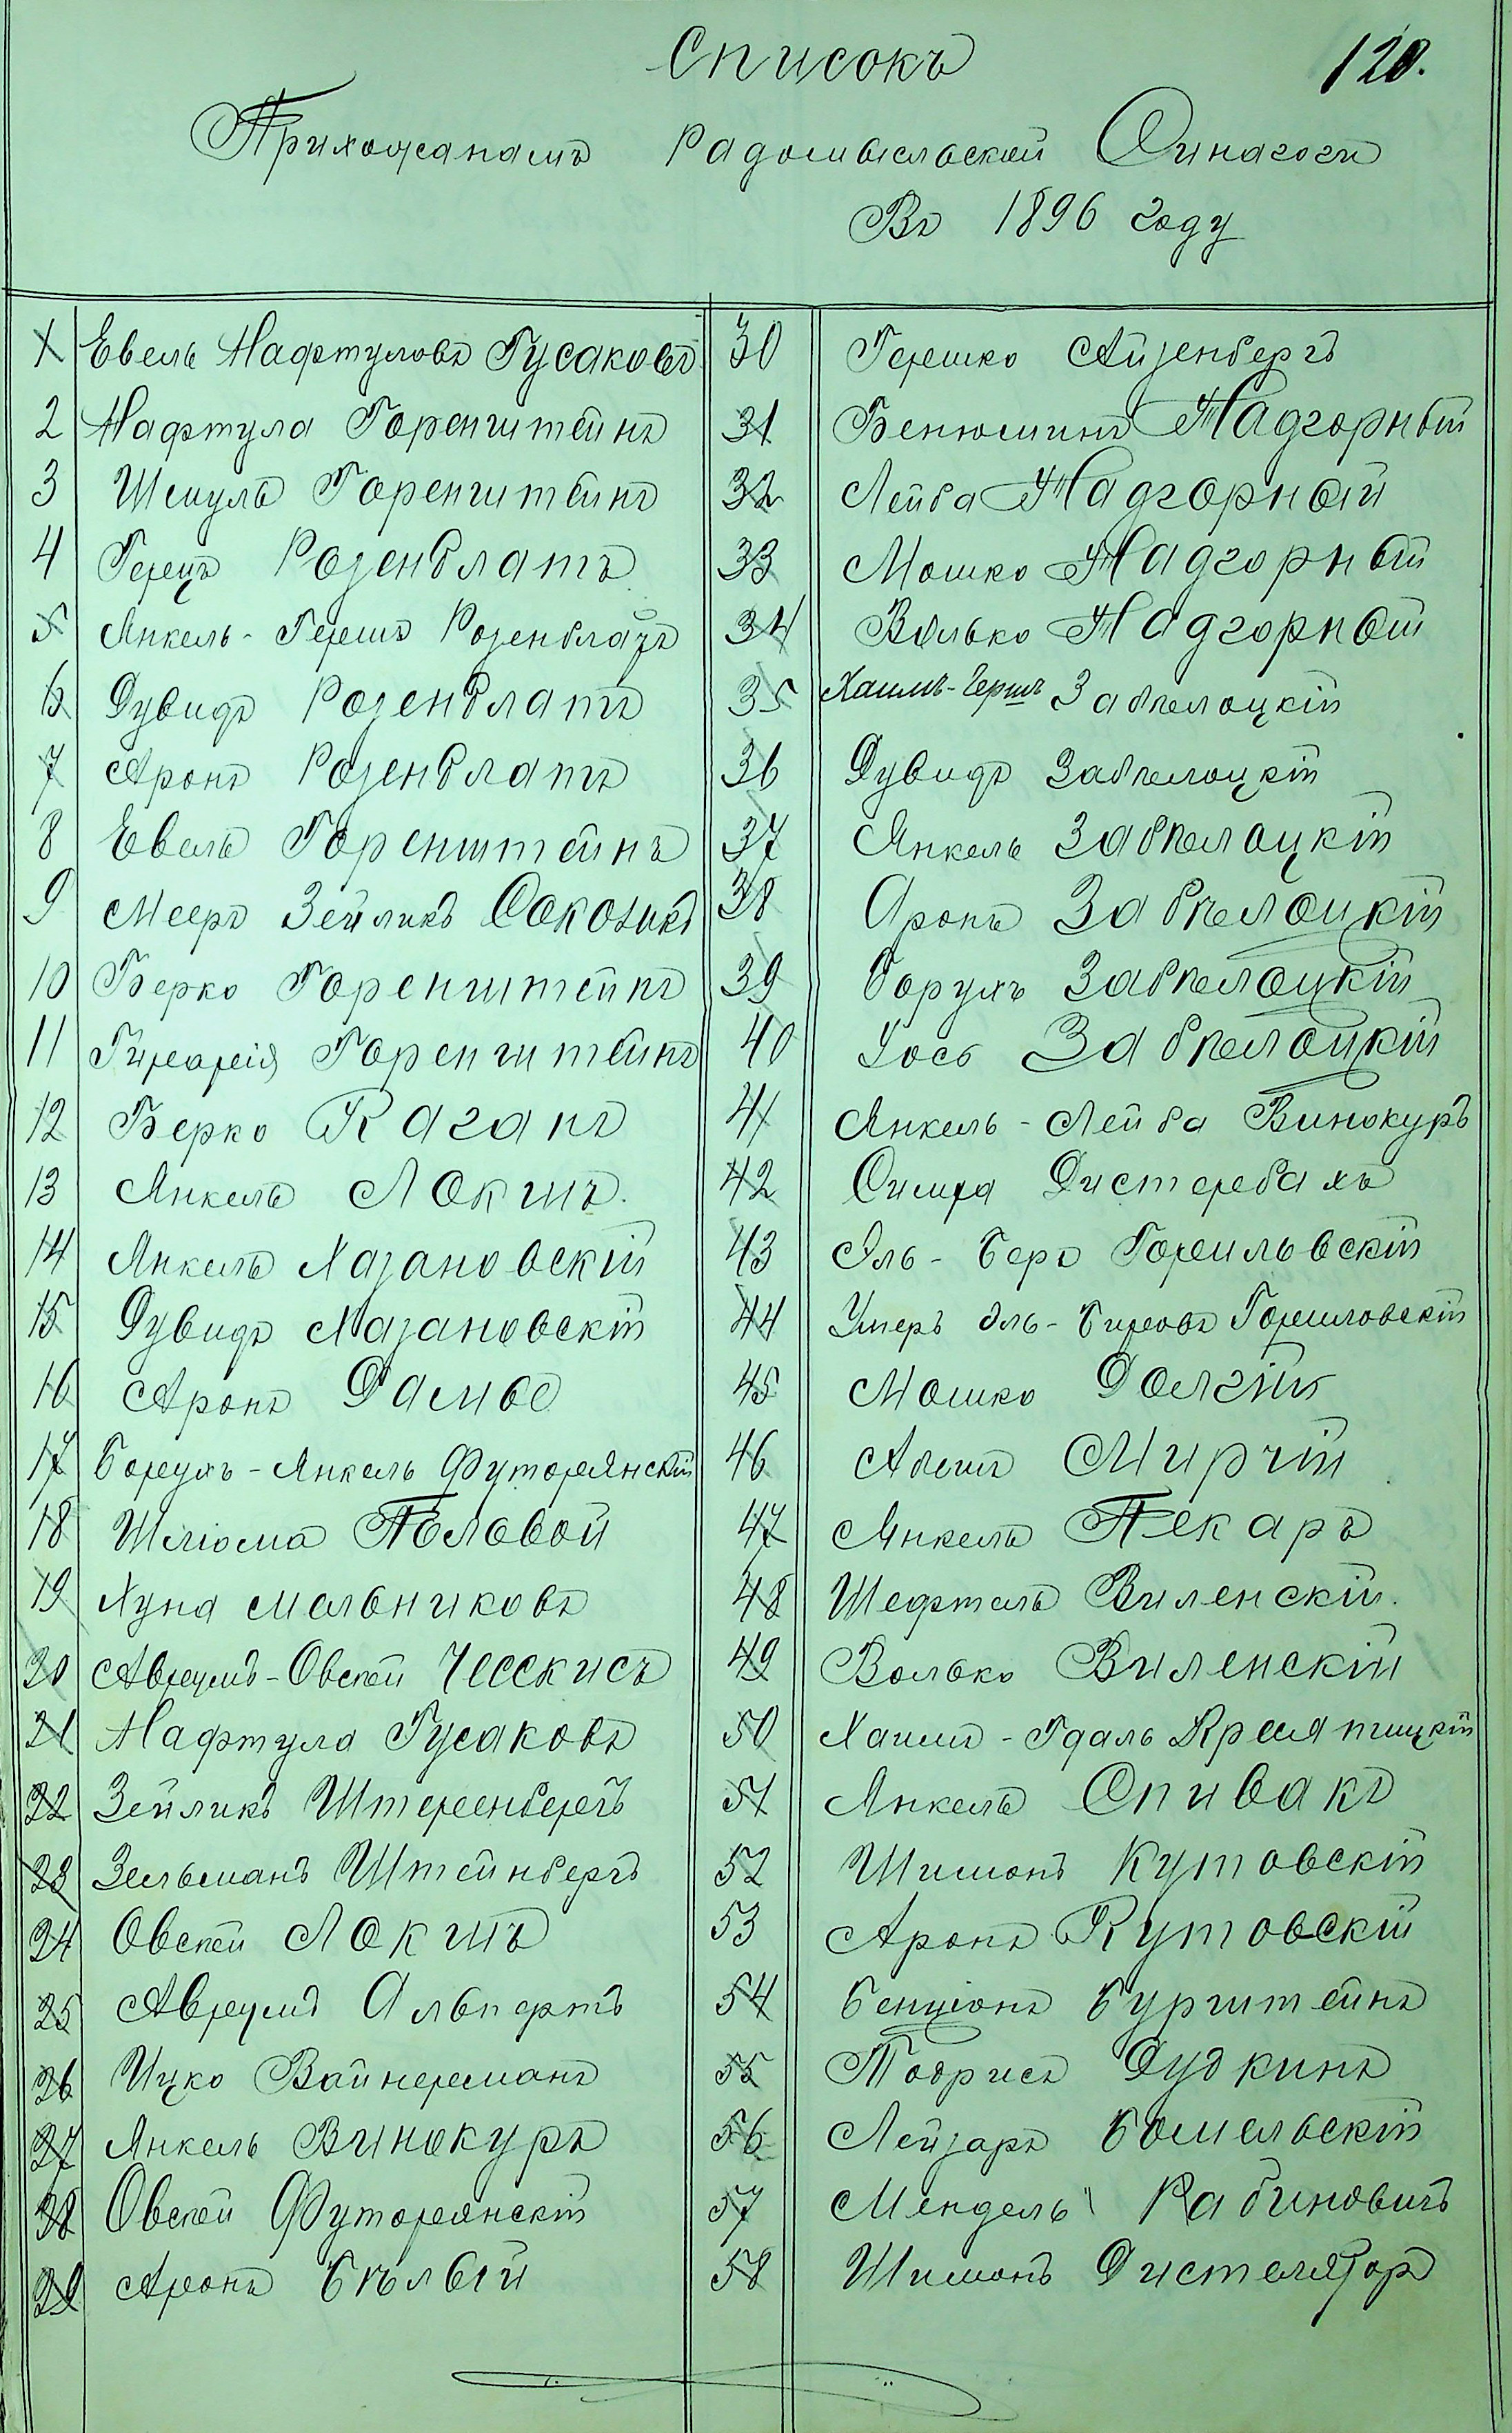 Списокъ
120.
Прихожанамъ Радомысльской Синагоги
Въ 1896 году
1 Евель Нафтуловъ Гусаковъ
2 Нафтула Горенштейнъ
3 Шмуль Горенштейнъ
4 Герецъ Розенблатъ
5 Янкель-Гершъ Розенблатъ
6 Дувидъ Розенблатъ
7 Аронъ Розенблатъ
8 Евель Горенштейнъ
9 Мееръ Зейликъ
10 Берко Горенштейнъ
11 Горенштейнъ
12 Берко Каганъ
13 Янкель Локшъ
14 Янкель Хазановскій
15 Дувидъ Хазановскій
16 Аронъ
17 Борухъ-Янкель Футорянскій
18 Шліома Половой
19 Хуна Мельниковъ
20 Аврумъ-Овсей Ческисъ
21 Нафтула Гусаковъ
22 Зейликъ Штеренбергъ
23 Зельманъ Штейнбергъ
24 Овсей Локшъ
25 Аврумъ Альпертъ
26 Ицко Вайнерманъ
27 Янкель Винокуръ
28 Овсей Футорянскій
29 Аронъ Бѣлый
30 Гершко Айзенбергъ
31 Бенюминъ Надгорный
32 Лейба Надгорный
33 Мошко Надгорный
34 Волько Надгорный
35 Хаимъ-Гершъ Забѣлоцкій
36 Дувидъ Забѣлоцкій
37 Янкель Забѣлоцкій
38 Аронъ Забѣлоцкій
39 Борухъ Забѣлоцкій
40 Іось Забѣлоцкій
41 Янкель-Лейба Винокуръ
42 Симха Дистербахъ
43 Эль-Беръ
44 Умеръ Эль-Беровъ
45 Мошко Долгій
46 Абрамъ
47 Янкель Пекаръ
48 Шефтель Виленскій.
49 Волько Виленскій
50 Хаимъ-Гдаль
51 Янкель Спивакъ
52 Шимонъ Кутовскій
53 Аронъ Кутовскій
54 Бенціонъ Бурштейнъ
55 Тодрисъ Дудкинъ
56 Лейзаръ
57 Мендель Рабиновичъ
58 Шимонъ Дистеляторъ